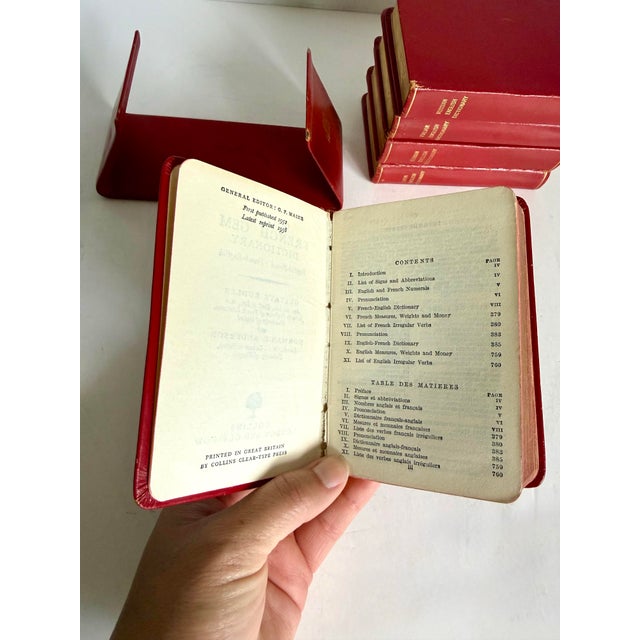 GENERAL EDITOR: G. F. MAINE
First published 1952
Latest reprint 1958
FRENCH GEM
DICTIONARY
PRINTED IN GREAT BRITAIN
BY COLLINS CLEAR-TYPE PRESS
CONTENTS
PAGE
I. Introduction IV
II. List of Signs and Abbreviations IV
III. English and French Numerals V
IV. Pronunciation VI
V. French-English Dictionary VIII
VI. French Measures, Weights and Money 379
VII. List of French Irregular Verbs 380
VIII. Pronunciation 383
IX. English-French Dictionary 385
X. English Measures, Weights and Money 759
XI. List of English Irregular Verbs 760
TABLE DES MATIÈRES
PAGE
I. Préface IV
II. Signes et abréviations IV
III. Nombres anglais et français V
IV. Prononciation VI
V. Dictionnaire français-anglais VIII
VI. Mesures et monnaies françaises 379
VII. Liste des verbes français irréguliers 380
VIII. Prononciation 383
IX. Dictionnaire anglais-français 385
X. Mesures et monnaies anglaises 759
XI. Liste des verbes anglais irréguliers 760
III
RUSSIAN
ENGLISH
DICTIONARY
ITALIAN
ENGLISH
DICTIONARY